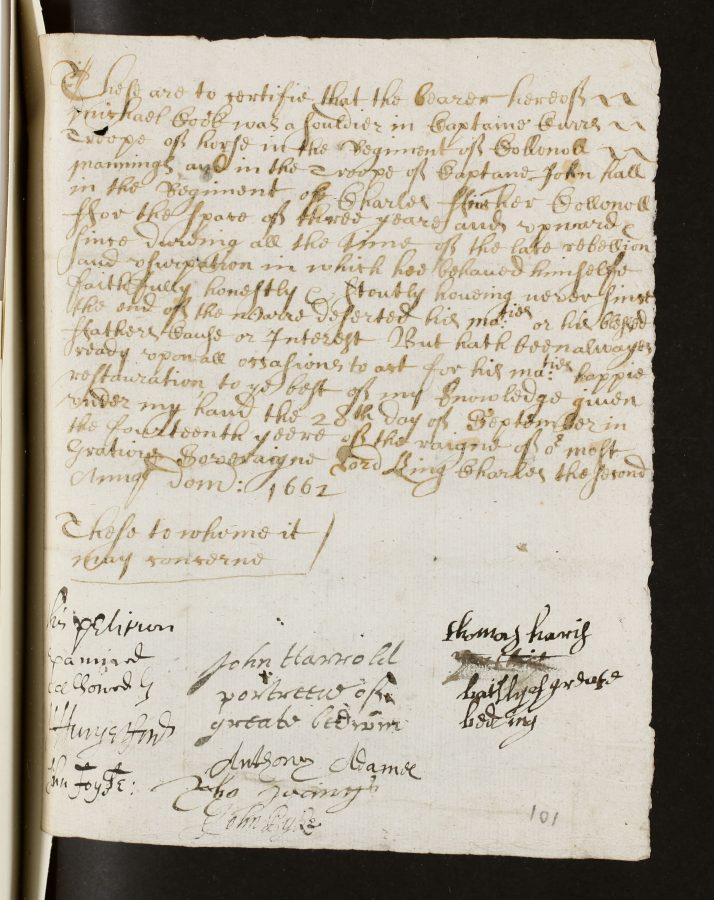 These are to certifie that the bearer hereof
Michael Cock was a souldier in Captaine
Troope of horse in the Regiment of Collonell
Mannings and in the Troope of Captane John Hall
in the Regiment of Charles Collonoll
ffor the space of three yeares and upwards
since dureing all the time of the late rebellion
and usurpation in which hee behaved himselfe
faithfully honestly & stoutly haveing never since
the end of the warre deserted his maties or his blessed
ffathers Cause or Interest But hath been alwayes
ready upon all occasions to act for his maties happie
restauration to ye best of my knowledge given
under my hand the 28th day of September in
the fourteenth yeere of the raigne of or most
Gratious Soveraigne Lord King Charles the second
Annoq Dom: 1662
These to whome it
may concerne
his petition
Examined
& allowed by
Hungerford
John Harrold
portreeve of
greate bedwin
Anthony Adames
Tho
John
Thomas Haris
baithly of greate
bedwin
101